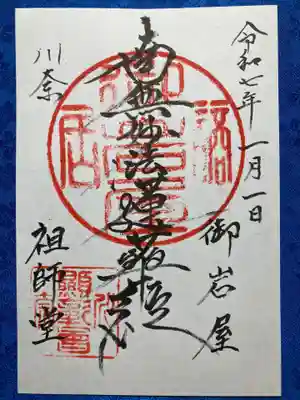 令和七年 一月一日
御岩屋
南無妙法蓮華経
川奈
祖師堂